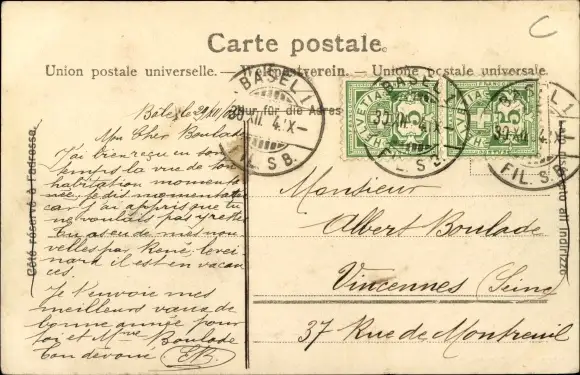 Carte postale.
Union postale universelle. — Weltpostverein. — Unione postale universale.
Nur für die Adresse
Côté réservé à l'adresse.
Lato riservato all'indirizzo
BASEL 1
30.XII. 4. IX–
FIL. S.B.
BASEL 1
30.XII. 4. IX–
FIL. S.B.
BASEL 1
30.XII. 4. IX–
FIL. S.B.
HELVETIA
5
HELVETIA
5
Bâle le
Mon Cher Boulade
J'ai bien reçu en son
temps la vue de ton
habitation momenta
née. Je dis momentanée
car j'ai appris que tu
ne voulais pas y rester
Tu as eu de mes nou
velles par René
il est en vacan
ces.
Je t'envoie mes
meilleurs vœux de
bonne année pour
toi et Mme Boulade
Ton dévoué
Monsieur
Albert Boulade
Vincennes (Seine)
37 Rue de Montreuil